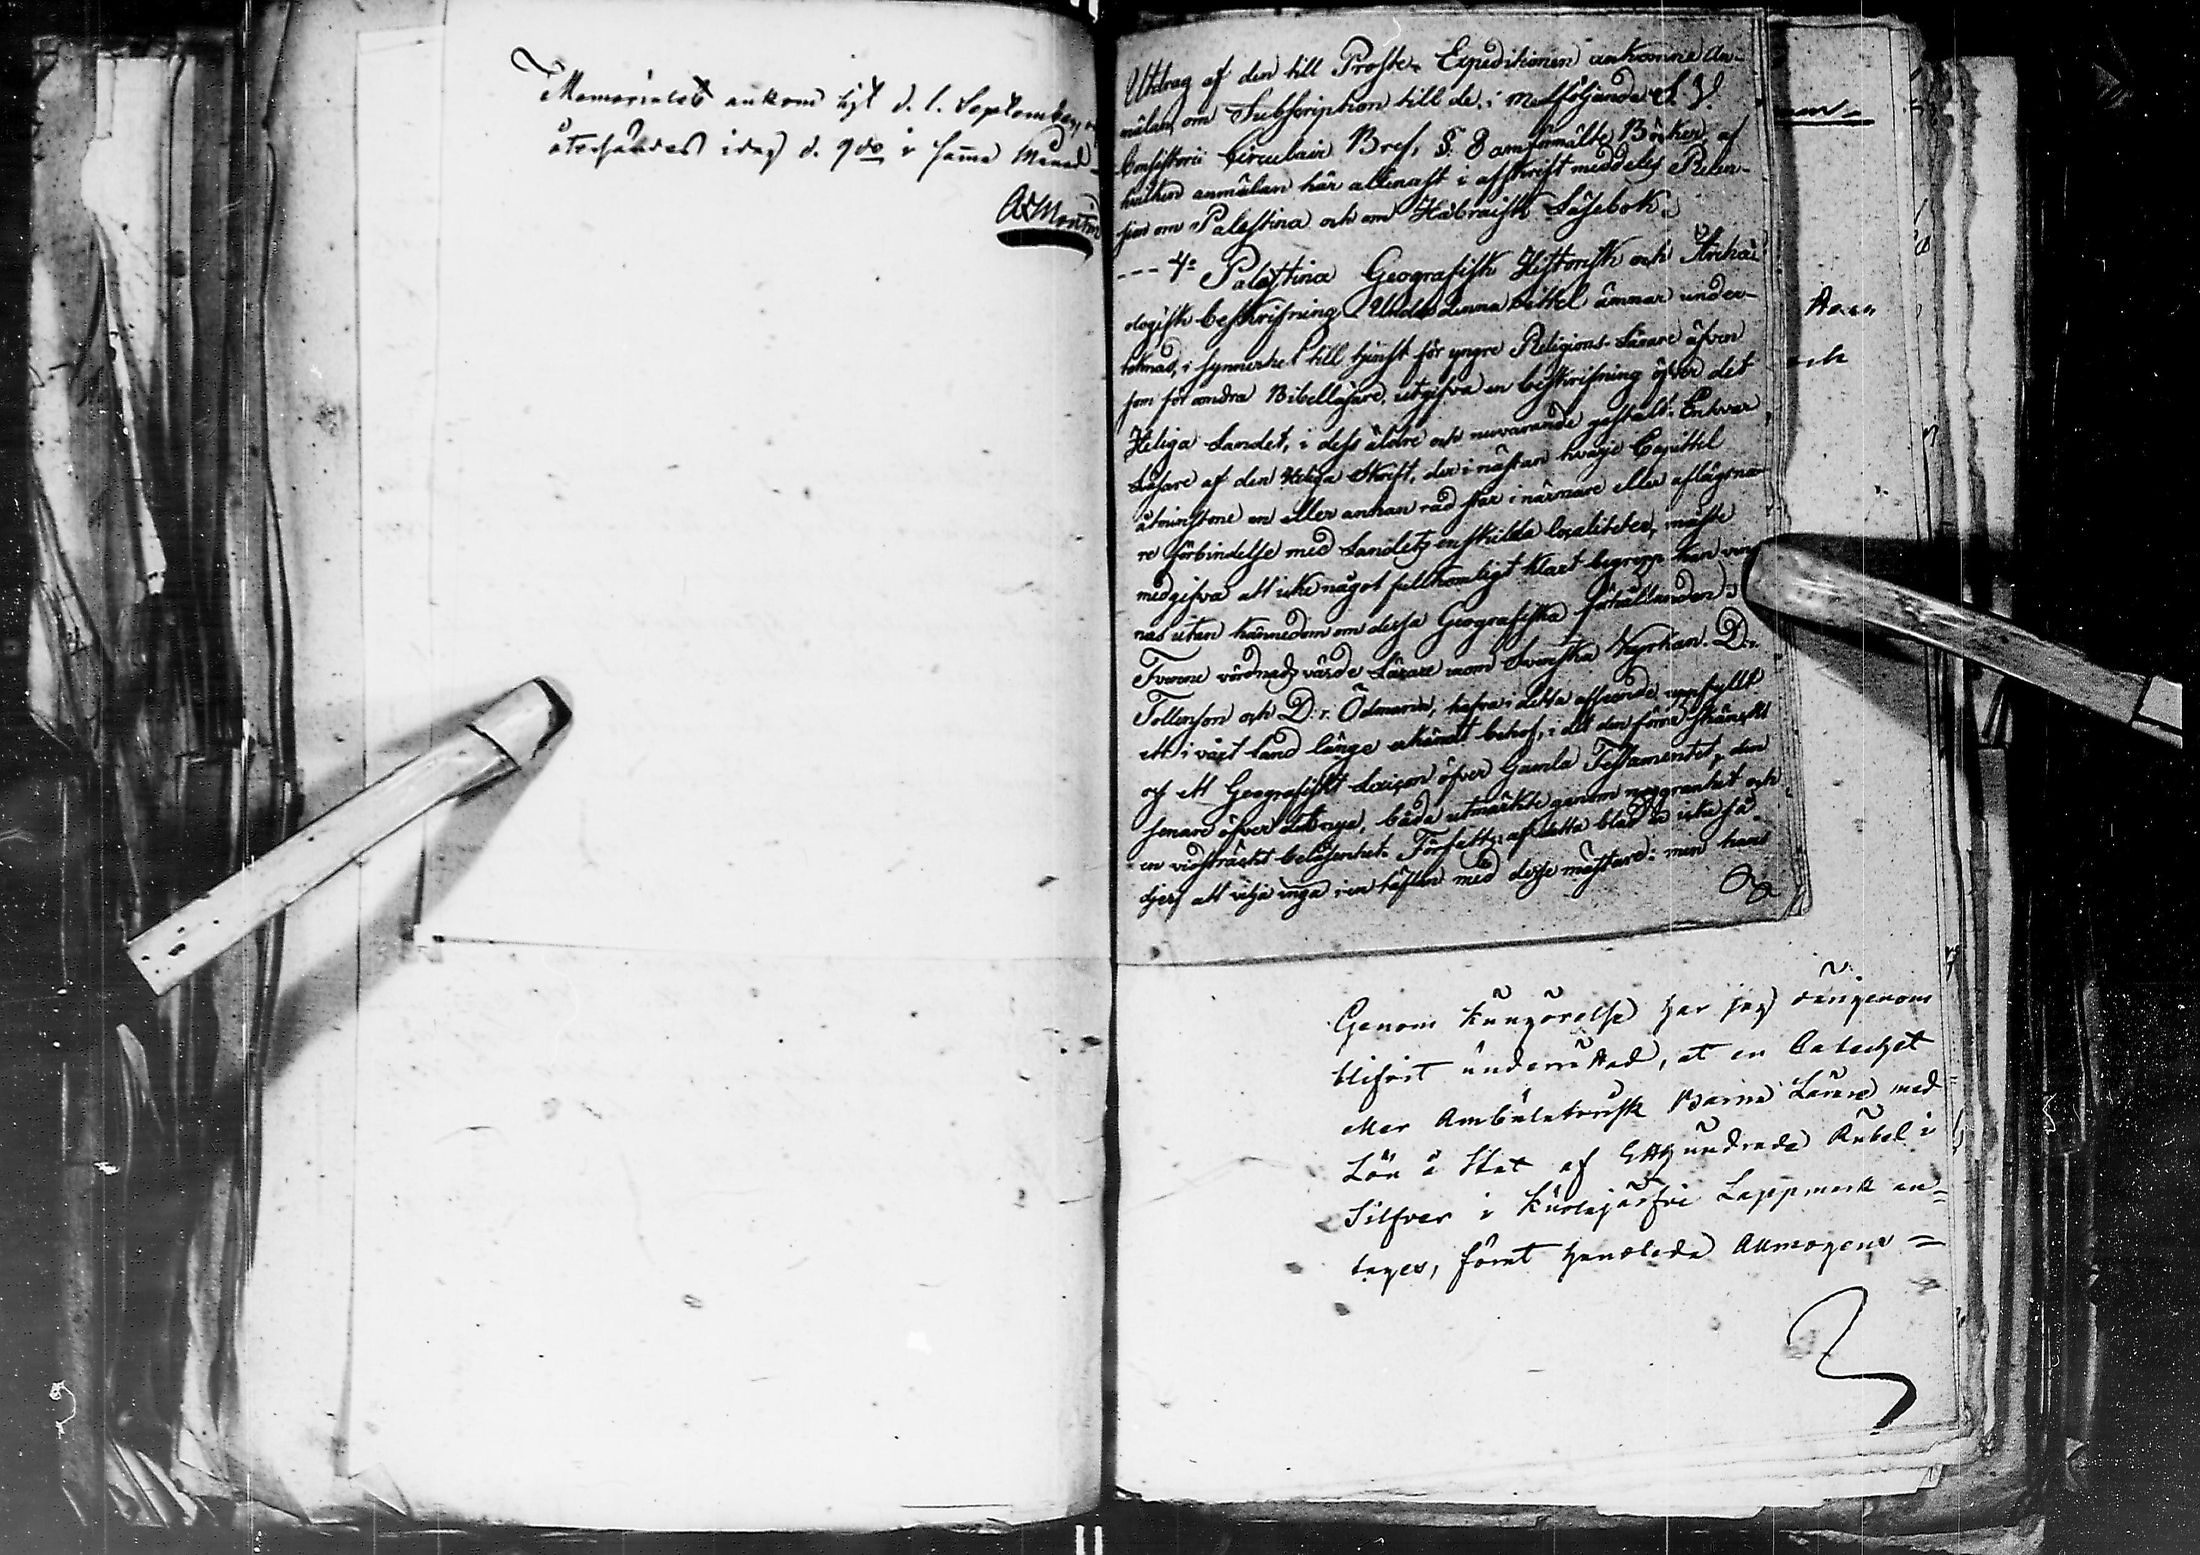 Memorialet ankom hit d. 1. September, och
återsändes idag d. 9de i samma Månad
Utdrag af den till Prosts-Expeditionen ankomne An-
mälan om Subscription till de, i medföljande S. V.
Consistorii Circulair Bref, §. 8 omförmälte Böcker, af
hvilken anmälan här allenast i afskrift meddeles Recen-
sion om Palestina och om Hebraisk Läsebok.
--- 4o Palæstina Geografisk Historisk och Arkæo-
logisk beskrifning. Under denna tittel ämnar under-
tecknad, i synnerhet till tjenst för yngre Religions-Lärare äfven
som för andra Bibelläsare, utgifva en beskrifning öfver det
Heliga Landet, i dess äldre och nuvarande gestalt. Enhvar
Läsare af den Heliga Skrift, der i nästan hvarje Capittel
åtminstone en eller annan rad står i närmare eller aflägsna-
re förbindelse med Landets enskilda localiteter, måste
medgifva att icke något fullkomligt klart begrepp kan vin-
nas utan kännedom om dessa Geografiska förhållanden.
Tvenne vördnads värde Lärare inom Svenska Kyrkan. D:r.
och D:r. Ödmann, hafva i detta afseende uppfyllt
ett i vårt land länge erkändt behof, i det den förre skänkt
oss ett Geografiskt Lexicon öfver Gamla Testamentet, den
senare öfver det nya, båda utmärkte genom noggranhet och
en vidsträckt beläsenhet. Författ: af detta blad är icke så
djerf att vilja inga i en täflan med desse mästare: men hans
Genom Kungörelse har jag
blifvit underrättad, at en Catechet
eller Ambulatorisk Barna Lärare med
Lön å Stat af Etthundrade Rubel i
Silfver i Kuolajärfvi Lappmark an=
tages, samt Allmogens =